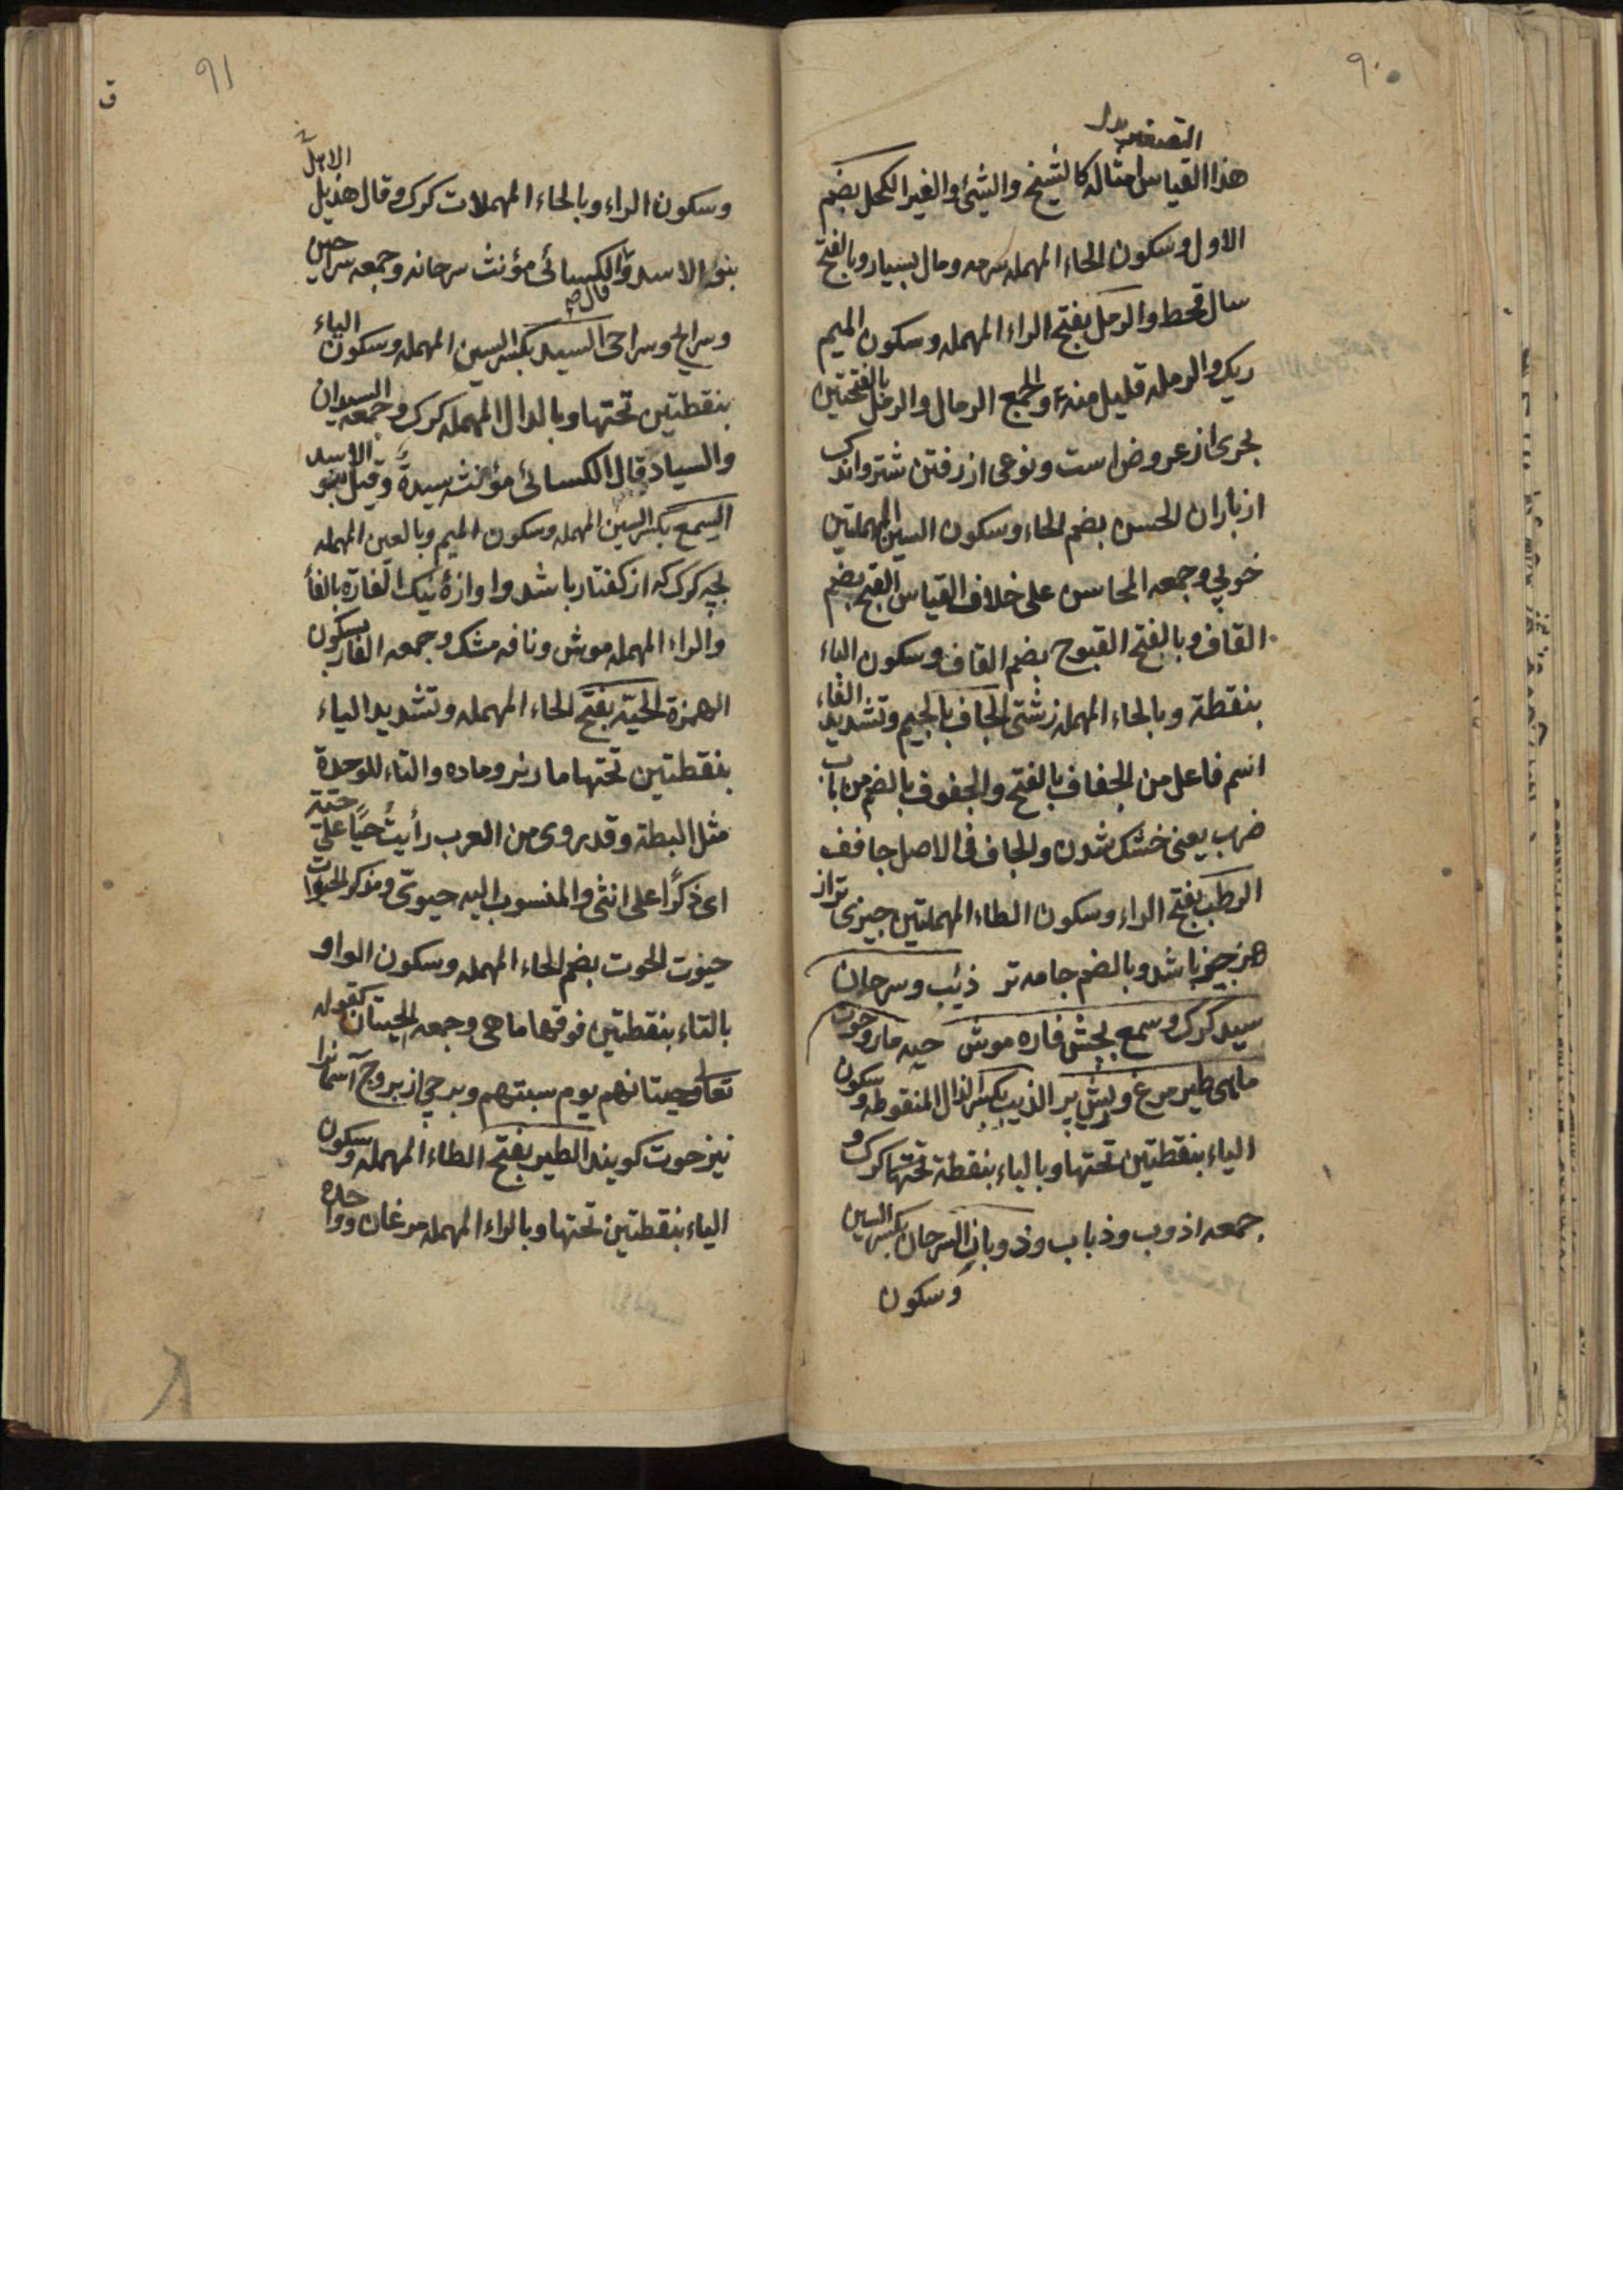 ٩٠
التصغير
هذا القياس امثاله كالشيخ والشيئ والغير الكحل بضم
الاول وسكون الحاء المهمله سرمه ومال بسيار وبالفتح
سال قحط والرمل بفتح الراء المهمله وسكون الميم
ريك والرمله قليل منه والجمع الرمال والرمل بالفتحتين
بحرى از عروض است ونوعى از رفتن شتر واندک
از باران الحسن بضم الحاء وسكون السين المهملتين
خوبى وجمعه المحاسن على خلاف القياس القبح بضم
القاف وبالفتح القبوح بضم القاف وسكون الباء
بنقطة وبالحاء المهمله زشتى الجاف بالجيم وتشديد الفاء
اسم فاعل من الجفاف بالفتح والجفوف بالضم من باب
ضرب يعنى خشك شدن والجاف فى الاصل جافف
الرطب بفتح الراء وسكون الطاء المهملتين چيزى تر از
هر چيز باشد وبالضم جامه تر ذئب وسرحان
سيد كرك وسمع بچش فاره موش حيه مار وحوت
ماهى طير مرغ وريش پر الذيب بكسر الذال المنقوطه وسكون
الياء بنقطتين تحتها وبالباء بنقطة تحتها كرك و
جمعه اذوب وذباب وذوبان السرحان بكسر السين
وسكون
٩١
ق
وسكون الراء وبالحاء المهملات كرك وقال هذيل الاهل
بنو الاسد والكسائى مؤنث سرحانه وجمعه سراحين
قال ص
وسراح وسراحى السيد بكسر السين المهمله وسكون الياء
بنقطتين تحتها وبالدال المهمله كرك وجمعه السيدان
والسياد قال الكسائى مؤنثه سيدة وقيل بنو الاسد
السمع بكسر السين المهمله وسكون الميم وبالعين المهمله
بچه كرك كه از كفتار باشد واوازهٔ نيك الفارة بالفأ
والراء المهمله موش ونافه مشك وجمعه الفار بسكون
الهمزة الحيّة بفتح الحاء المهمله وتشديد الياء
بنقطتين تحتها مار نر وماده والتاء للوحدة
مثل البطة وقد يروى من العرب رأيتُ حيًّا على حيّة
اى ذكرًا على انثى والمنسوب اليه حيوىّ ومذكر الحيوات
حيوت الحوت بضم الحاء المهمله وسكون الواو
بالتاء بنقطتين فوقها ماهى وجمعه الحيتان كقوله
تعالى حيتانهم يوم سبتهم وبرجى از بروج آسمانرا
نيز حوت كويند الطير بفتح الطاء المهمله وسكون
الياء بنقطتين تحتها وبالراء المهمله مرغان وواحده